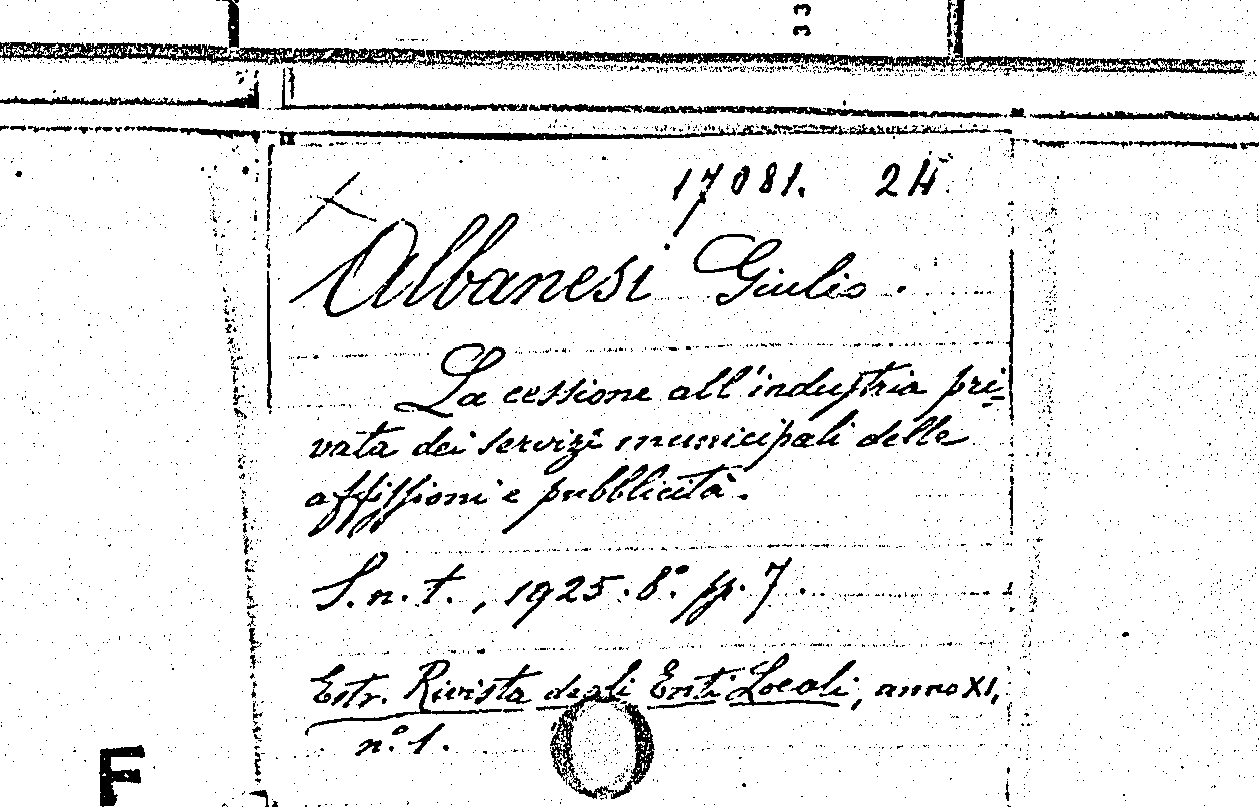 33
17081. 24
Albanesi Giulio.
La cessione all'industria pri-
vata dei servizi municipali delle
affissioni e pubblicità.
S.n.t., 1925. 8° pp. 7.
Estr. Rivista degli Enti Locali, anno XI,
n° 1.
F